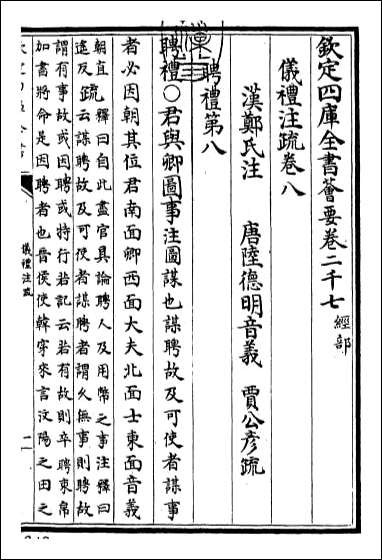 欽定四庫全書薈要卷二千七 經部
儀禮注疏卷八
漢鄭氏注 唐陸德明音義 賈公彥疏
聘禮第八
聘禮○君與卿圖事注圖謀也謀聘故及可使者謀事
者必因朝其位君南面卿西面大夫北面士東面音義
朝直遥反疏釋曰自此盡官具論聘人及用幣之事注釋曰
云謀聘故及可使者謀聘者謂久無事則聘故
謂有事故或因聘或特行若記云若有故則卒聘束帛
加書將命是因聘者也晉侯使韓穿來言汶陽之田之
儀禮注疏